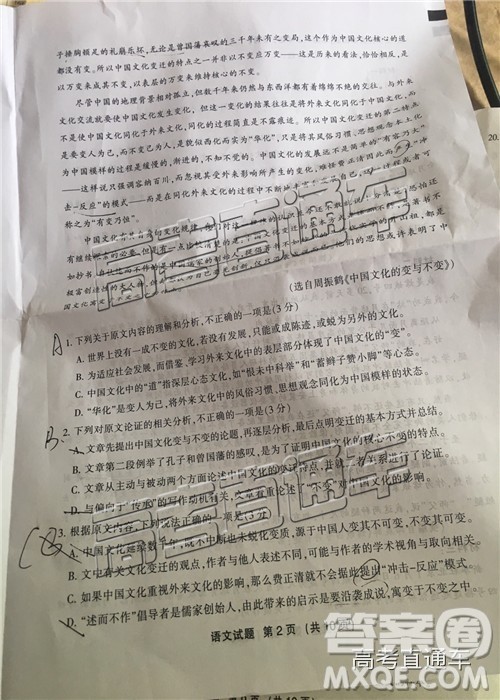 都没有变。所以中国文化变迁的特点之一并非以不变应万变——这是历来的看法，恰恰相反，是
以万变来成其不变，以表层的万变来维持核心的不变。
尽管中国的地理背景相对孤立，但数千年来仍然与东西洋都有着绵绵不绝的交往。与外来
文化交流就要使中国文化发生变化，但这一变化的结果往往是将外来文化同化于中国文化，而
不是使中国文化同化于外来文化，同化的过程简直是不露痕迹。所以中国文化变迁的第二特点
是要变人为己，而不变己为人，是貌似西化而实为“华化”，只是将其风俗习惯、思想观念
为中国模样的过程是缓慢的，渐进的，不知不觉的。中国文化的发展远不是简单的“有容乃大”
——这样说只强调容纳百川，而忽视其受外来影响所产生的变化
去—反应”的模式——而是在同化外来文化的过程中
称之为“有变乃恒”。
（选自周振鹤《中国文化的变与不变》）
A 1. 下列关于原文内容的理解和分析，不正确的一项是（3分）
A. 世界上没有一成不变的文化，若没有发展，只能或成陈迹，或蜕为另外的文化。
B. 为适应社会发展，而借鉴、学习外来文化中的表层部分体现了中国文化的“变”。
C. 中国文化中的“道”指深层心态文化，如“恨未中科举”和“蓄辫子赞小脚”等心态。
D. “华化”是变人为己，将外来文化中的风俗习惯、思想观念同化为中国模样的状态。
B 2. 下列对原文论证的相关分析，不正确的一项是（3分）
A. 文章先提出中国文化变与不变的论题，再逐层分析，最后点明变迁的基本方式并总结。
B. 文章第二段例举了孔子和曾国藩的感叹，是为了证明中国文化的核心不变的特点。
C. 文章从主动与被动两个方面论述中国文化的变迁特点，并就二者关系进行了论证。
D. 与偏向于“传承”的写作动机有关，文章看重论述了“不变”对中国文化的影响。
3. 根据原文内容，下列说法正确的一项是（3分）
A. 中国文化延续数千年，既不中断也未蜕化变质，源于中国人变其不可变，不变其可变。
B. 文中有关文化变迁的观点，作者与他人表述不同，可能与作者的学术视角与取向相关。
C. 如果中国文化重视外来文化的影响，那么费正清就不会据此提出“冲击—反应”模式。
D. “述而不作”倡导者是儒家创始人，由此带来的启示是要沿袭成说，寓变于不变之中。
语文试题 第2页（共10页）
高考直通车
高考直通车
答案圈
高考直通车